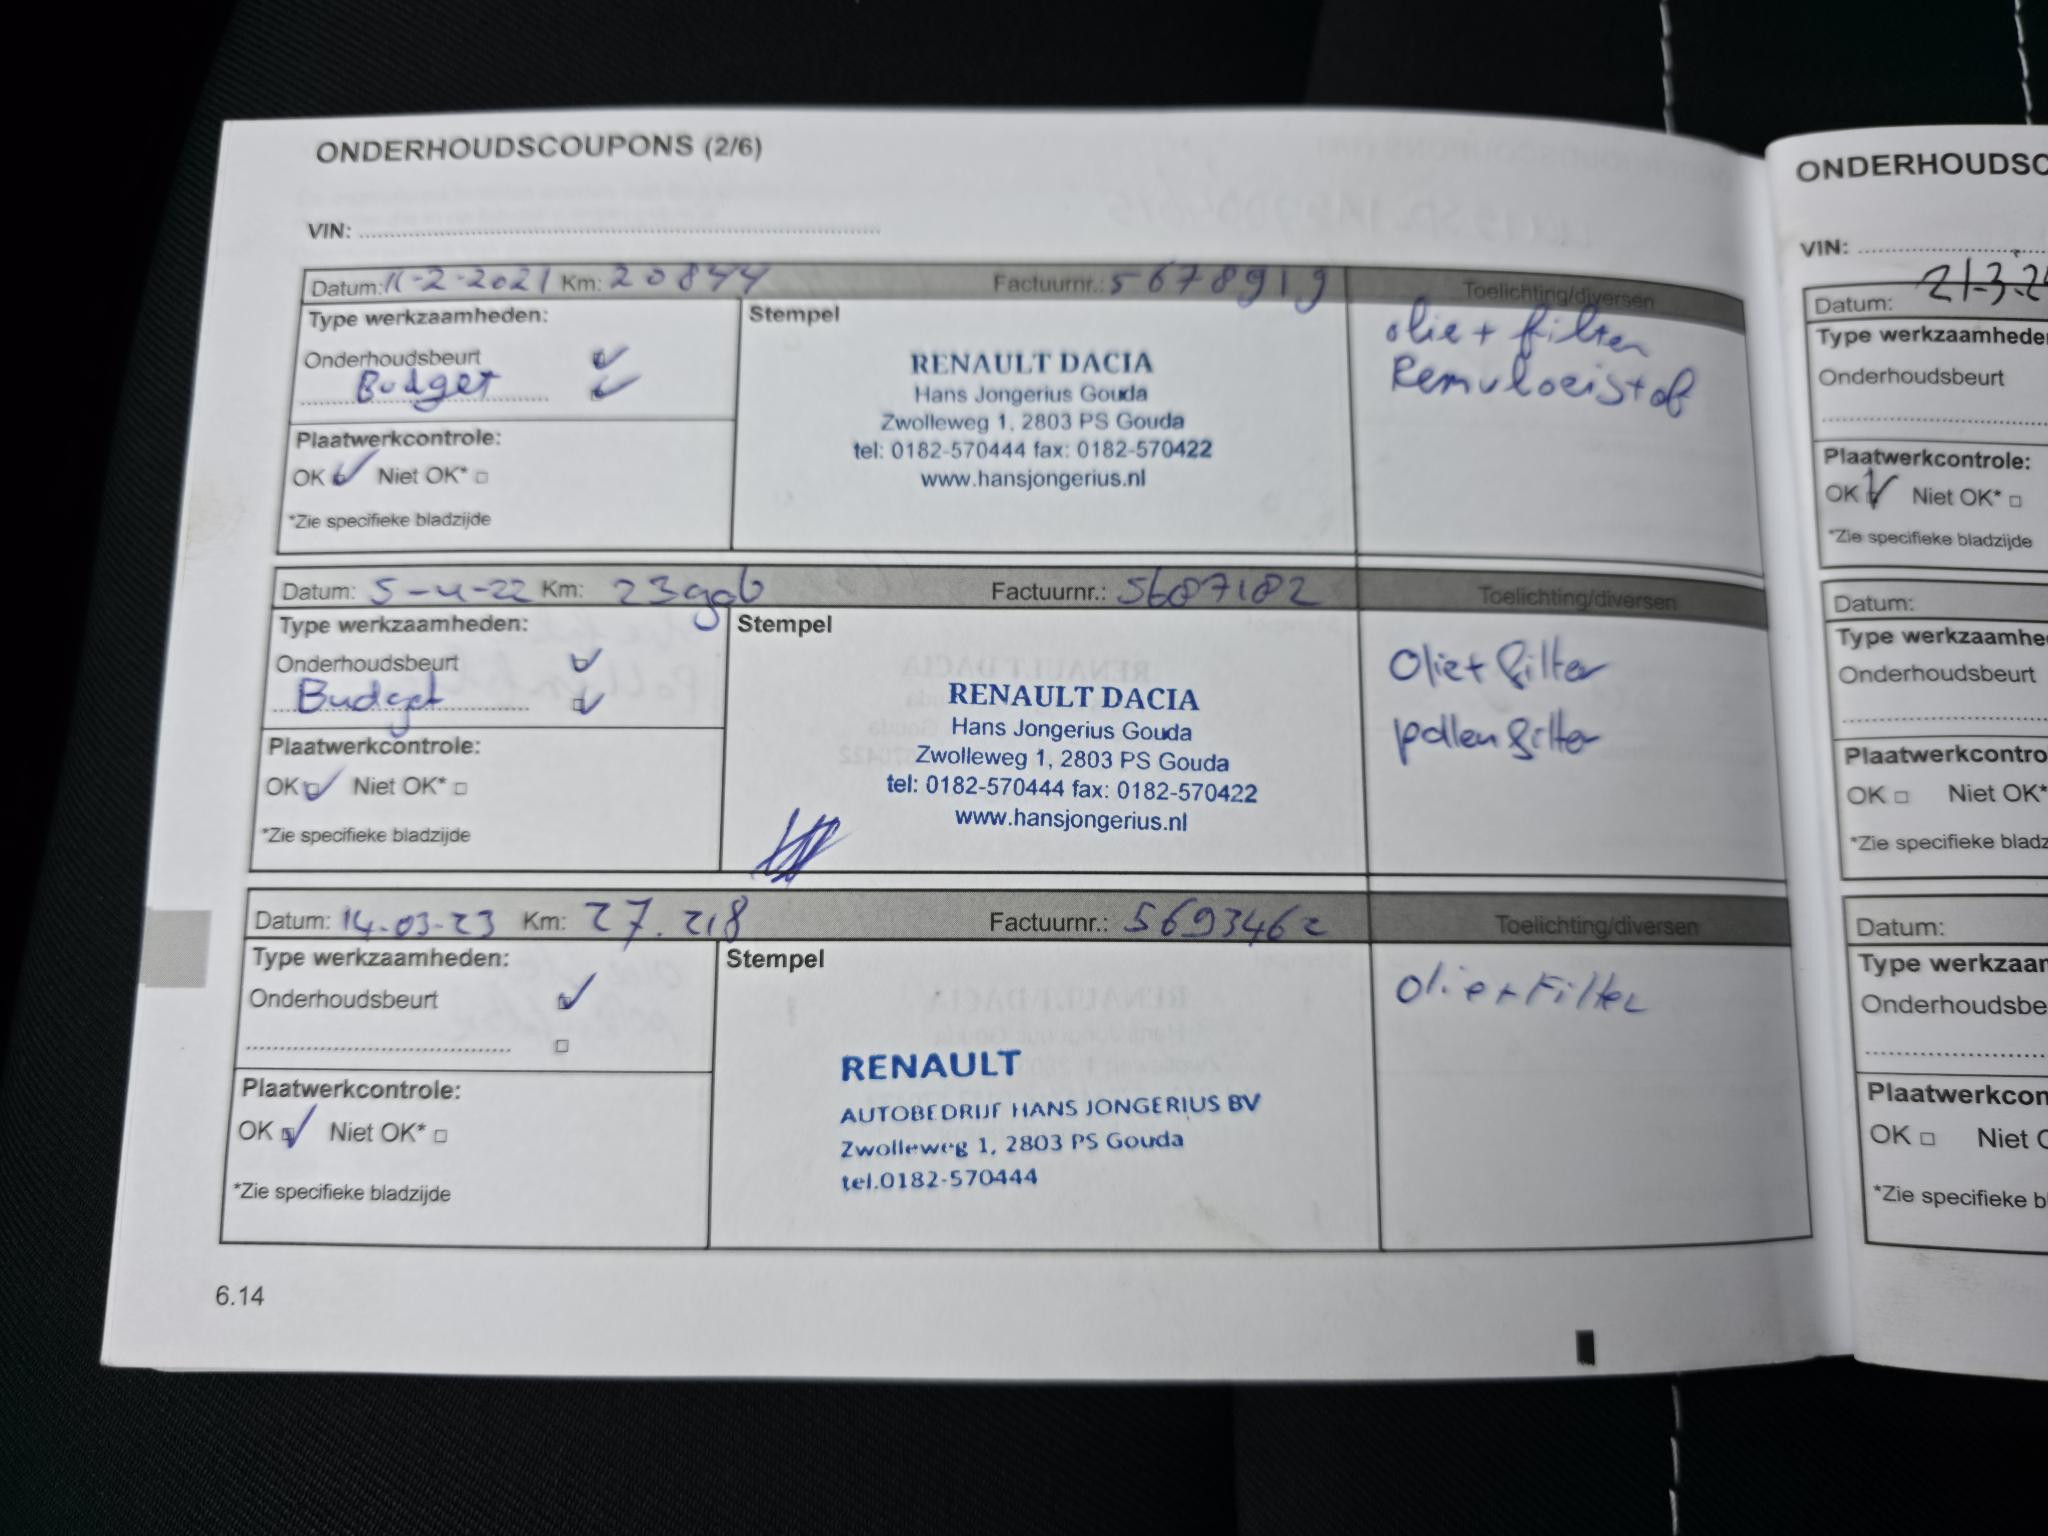 ONDERHOUDSCOUPONS (2/6)
VIN:
Datum: 11-2-2021 Km: 20844 Factuurnr.: 5678919 Toelichting/diversen
Type werkzaamheden:
Onderhoudsbeurt
Budget
Plaatwerkcontrole:
OK Niet OK*
*Zie specifieke bladzijde
Stempel
RENAULT DACIA
Hans Jongerius Gouda
Zwolleweg 1, 2803 PS Gouda
tel: 0182-570444 fax: 0182-570422
www.hansjongerius.nl
olie + filter
Remvloeistof
Datum: 5-4-22 Km: Factuurnr.: 5687182 Toelichting/diversen
Type werkzaamheden:
Onderhoudsbeurt
Budget
Plaatwerkcontrole:
OK Niet OK*
*Zie specifieke bladzijde
Stempel
RENAULT DACIA
Hans Jongerius Gouda
Zwolleweg 1, 2803 PS Gouda
tel: 0182-570444 fax: 0182-570422
www.hansjongerius.nl
Olie + filter
pollenfilter
Datum: 14-03-23 Km: 27.218 Factuurnr.: 5693462 Toelichting/diversen
Type werkzaamheden:
Onderhoudsbeurt
Plaatwerkcontrole:
OK Niet OK*
*Zie specifieke bladzijde
Stempel
RENAULT
AUTOBEDRIJF HANS JONGERIUS BV
Zwolleweg 1, 2803 PS Gouda
tel.0182-570444
olie + Filter
6.14
ONDERHOUDSC
VIN:
Datum: 21-3-2
Type werkzaamhede
Onderhoudsbeurt
Plaatwerkcontrole:
OK Niet OK*
*Zie specifieke bladzijde
Datum:
Type werkzaamhe
Onderhoudsbeurt
Plaatwerkcontro
OK Niet OK*
*Zie specifieke bladz
Datum:
Type werkzaam
Onderhoudsbe
Plaatwerkcon
OK Niet O
*Zie specifieke b